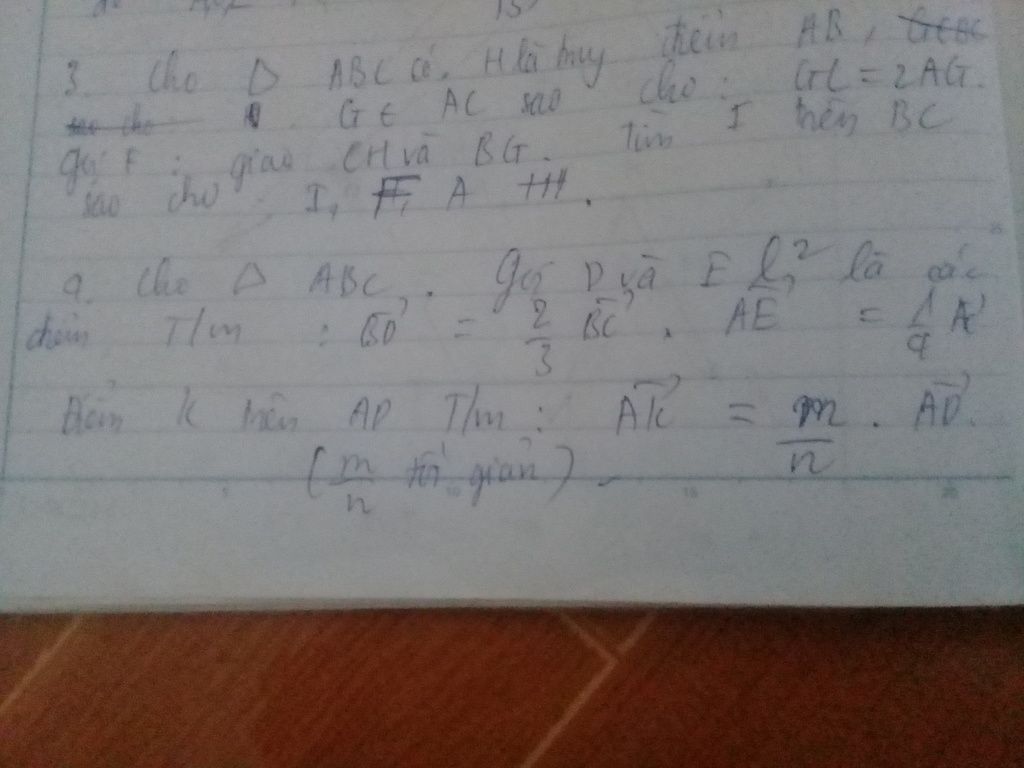 3. Cho Δ ABC có. H là trung điểm AB,
G ∈ AC sao cho : GC = 2AG.
gọi F : giao CH và BG. Tìm I trên BC
sao cho : I, F, A thẳng hàng.
Cho Δ ABC. Gọi D và E là các
điểm T/m : BD = 2/3 BC. AE = 1/4 A
điểm K trên AD T/m : AK = m/n . AD.
(m/n tối giản)